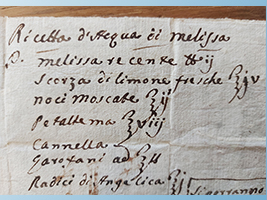 Ricetta d'Acqua di melissa
melissa recente ℔ij
scorza di limone fresche ℥iv
noci moscate ℥ij
Petalle ma ℥viij
Cannella
Garofani aa ℥ß
Radici di Angelica ℥j